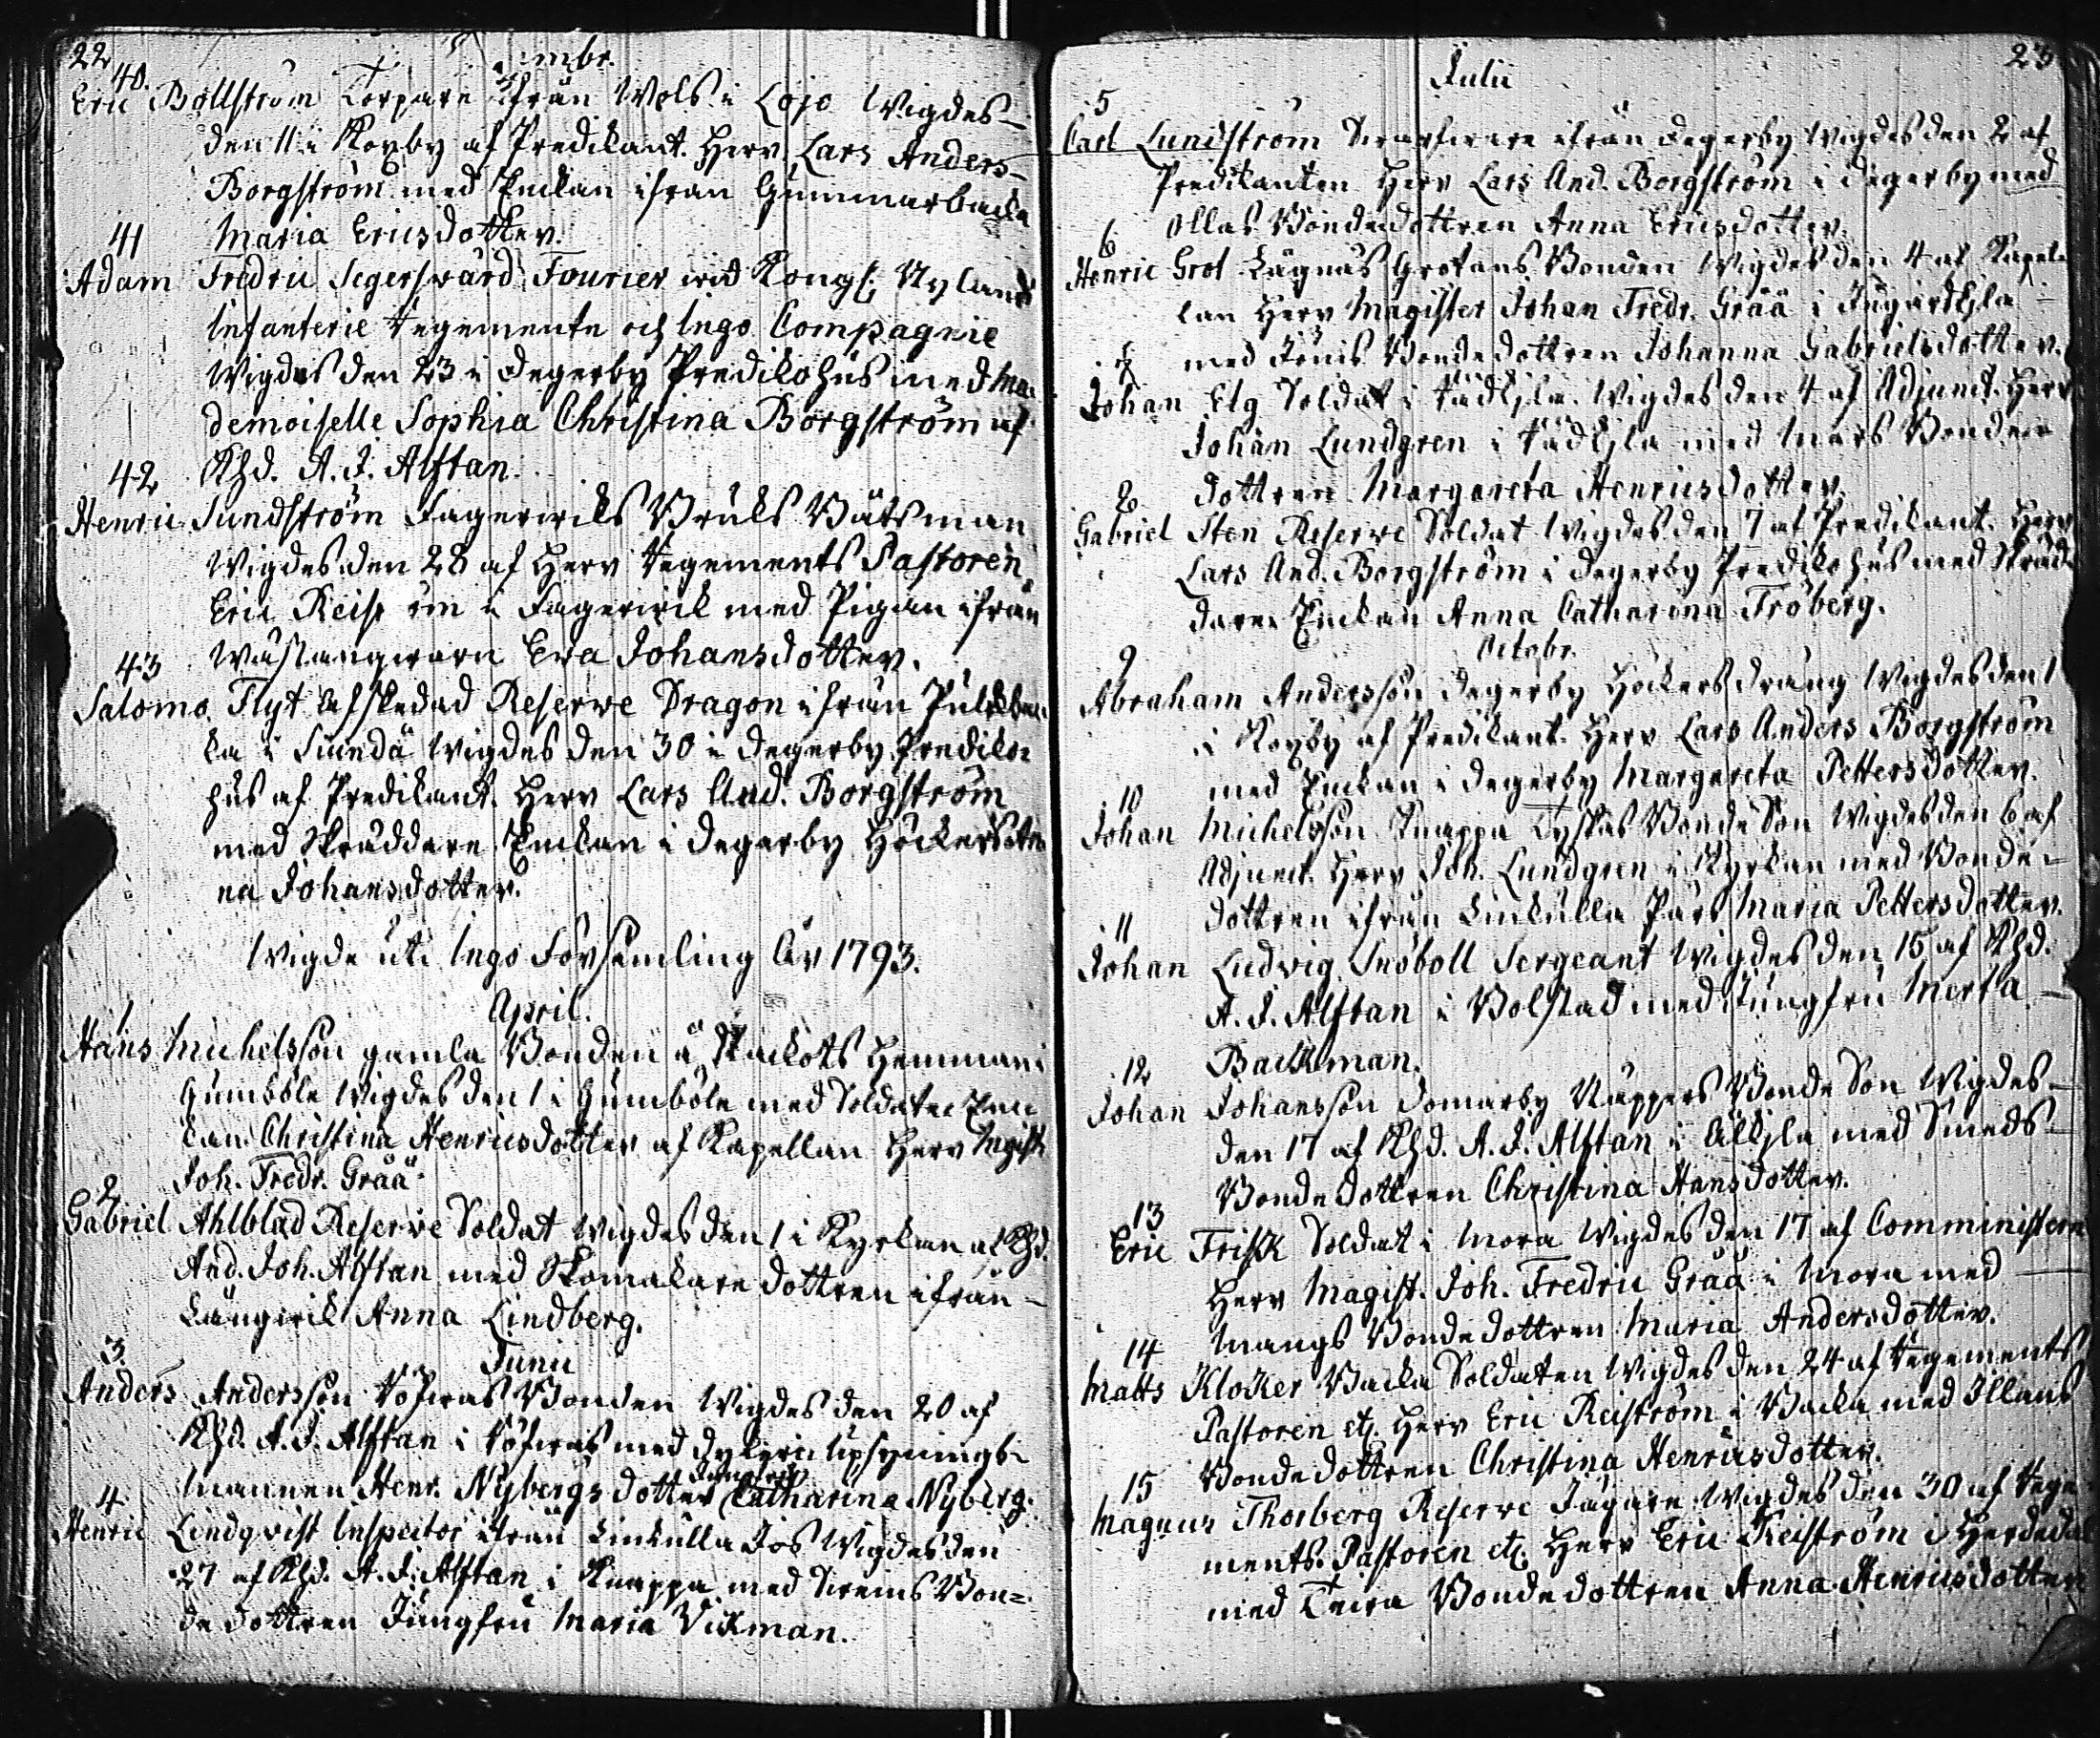 22
mbr.
40.
Eric Bollström Torpare ifrån Wols i Lojo Wigdes
den 11 i Koxby af Predikant. Herr Lars Anders
Borgström med Enkan ifrån Gunnarbacka
Maria Ericsdotter.
41
Adam Fredric Segersvärd Fourier wid Kongl. Nylands
Infanterie Regemente och Ingo Compagnie
Wigdes den 23 i Degerby Predikohus med Ma-
demoiselle Sophia Christina Borgström af
Khd. A. J. Alftan.
42
Henric Sundström Fagerwiks Bruks Båtsman
Wigdes den 28 af Herr Regements Pastoren
Eric Reist öm i Fagerwik med Pigan ifrån
Eva Johansdotter.
43
Salomo. Flyt Afskedad Reserve Dragon ifrån
ka i Siundå Wigdes den 30 i Degerby Prediko-
hus af Predikant. Herr Lars And. Borgström
med Skräddare Enkan i Degerby Höckers
na Johansdotter.
Wigde uti Ingo Församling År 1793.
April.
1
Hans Michelsson gamla Bonden å Hemman i
Gumböle Wigdes den 1 i Gumböle med Soldate En-
kan Christina Henricsdotter af Kapellan Herr Magist
Joh. Fredr. Gråå
2
Gabriel Ahlblad Reserve Soldat Wigdes den 1 i Kyrkan af Khd.
And. Joh. Alftan med Skomakare dottren ifrån
Långwik Anna Lindberg.
Junii
3.
Anders Andersson Bonden Wigdes den 20 af
Khd. A. J. Alftan i med Upsynings-
Mannen Henr. Nybergs dotter Jungfru Catharina Nyberg.
4
Henric Lindqvist Inspector ifrån Linkulla Jos Wigdes den
27 af Khd. A. J. Alftan i Knappa med Bon=
de dottren Jungfru Maria Vikman.
23
Julii
5
Carl Lundström ifrån Degerby Wigdes den 2 af
Predikanten Herr Lars And. Borgström i Degerby med
Ollas Bondedottren Anna Ericsdotter.
6
Henric Grot Lägnäs Grotans Bonden Wigdes den 4 af Kapel-
lan Herr Magister Johan Fredr. Gråå i
med Bonde dottren Johanna Gabrielsdotter.
7
Johan Elg Soldat i Wigdes den 4 af Adjunct. Herr
Johan Lundgren i med Mars Bonde
dottren Margareta Henricsdotter.
8
Gabriel Sten Reserve Soldat Wigdes den 7 af Predikant. Herr
Lars And. Borgström i Degerby Predikohus med Skräd-
dare Enkan Anna Catharina Fröberg.
Octobr.
9
Abraham Andersson Degerby Höckers dräng Wigdes den 1
i Koxby af Predikant. Herr Lars Anders Borgström
med Enkan i Degerby Margareta Pettersdotter.
10
Johan Michelsson Knappa Tyskas Bonde Son Wigdes den 6 af
Adjunct. Herr Joh. Lundgren i Kyrkan med Bonde-
dottren ifrån Linkulla Pars Maria Pettersdotter.
11
Johan Ludvig Snöboll Sergeant Wigdes den 15 af Khd.
A. J. Alftan i Bolstad med Jungfru Merta
Backman.
12
Johan Johansson Domarby Näppers Bonde Son Wigdes
den 17 af Khd. A. J. Alftan i med Smeds
Bonde dottren Christina Hansdotter.
13
Eric Frisk Soldat i Mora Wigdes den 17 af Comministern
Herr Magist. Joh. Fredric Gråå i Mora med
Mangs Bonde dottren Maria Andersdotter.
14
Matts Kloker Backa Soldaten Wigdes den 24 af Regements
Pastoren etc. Herr Eric Reiström i Backa med Illans
Bonde dottren Christina Henricsdotter.
15
Magnus Thorberg Reserve Jägare Wigdes den 30 af Rege-
ments. Pastoren etc. Herr Eric Reiström i Herdedal
med Bonde dottren Anna Henricsdotter